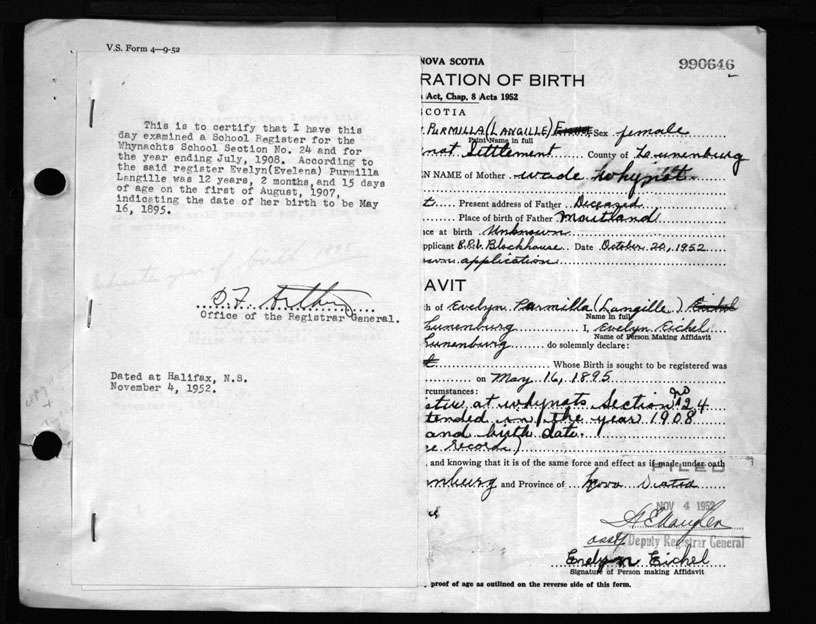 V.S. Form 4—9-52
This is to certify that I have this
day examined a School Register for the
Whynachts School Section No. 24 and for
the year ending July, 1908. According to
the said register Evelyn(Evelena) Purmilla
Langille was 12 years, 2 months,and 15 days
of age on the first of August, 1907,
indicating the date of her birth to be May
16, 1895.
year of birth 1895
Office of the Registrar General.
Dated at Halifax, N.S.
November 4, 1952.
NOVA SCOTIA
990646
RATION OF BIRTH
Act, Chap. 8 Acts 1952
SCOTIA
PURMILLA (LANGILLE) Sex female
Print Name in full
nat Settlement County of Lunenburg
EN NAME of Mother wade whynot
t Present address of Father Deceased
Place of birth of Father Maitland
ace at birth Unknown
pplicant Blockhouse Date October 20, 1952
own application
AVIT
th of Evelyn Parmilla (Langille) Eichel
Name in full
Lunenburg I, Evelyn Eichel
Name of Person Making Affidavit
Lunenburg do solemnly declare:
t Whose Birth is sought to be registered was
on May 16, 1895
rcumstances:
ster at whynats Section no 24
tended in the year 1908
and birth date.
e records)
, and knowing that it is of the same force and effect as if made under oath
FILED
nburg and Province of Nova Scotia
NOV 4 1952
asst Deputy Registrar General
Evelyn Eichel
Signature of Person making Affidavit
proof of age as outlined on the reverse side of this form.